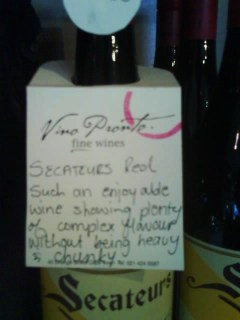 Vino Pronto.
fine wines
SECATEURS Red
Such an enjoyable
wine showing plenty
of complex flavour
without being heavy
& chunky
Secateurs
Secateurs